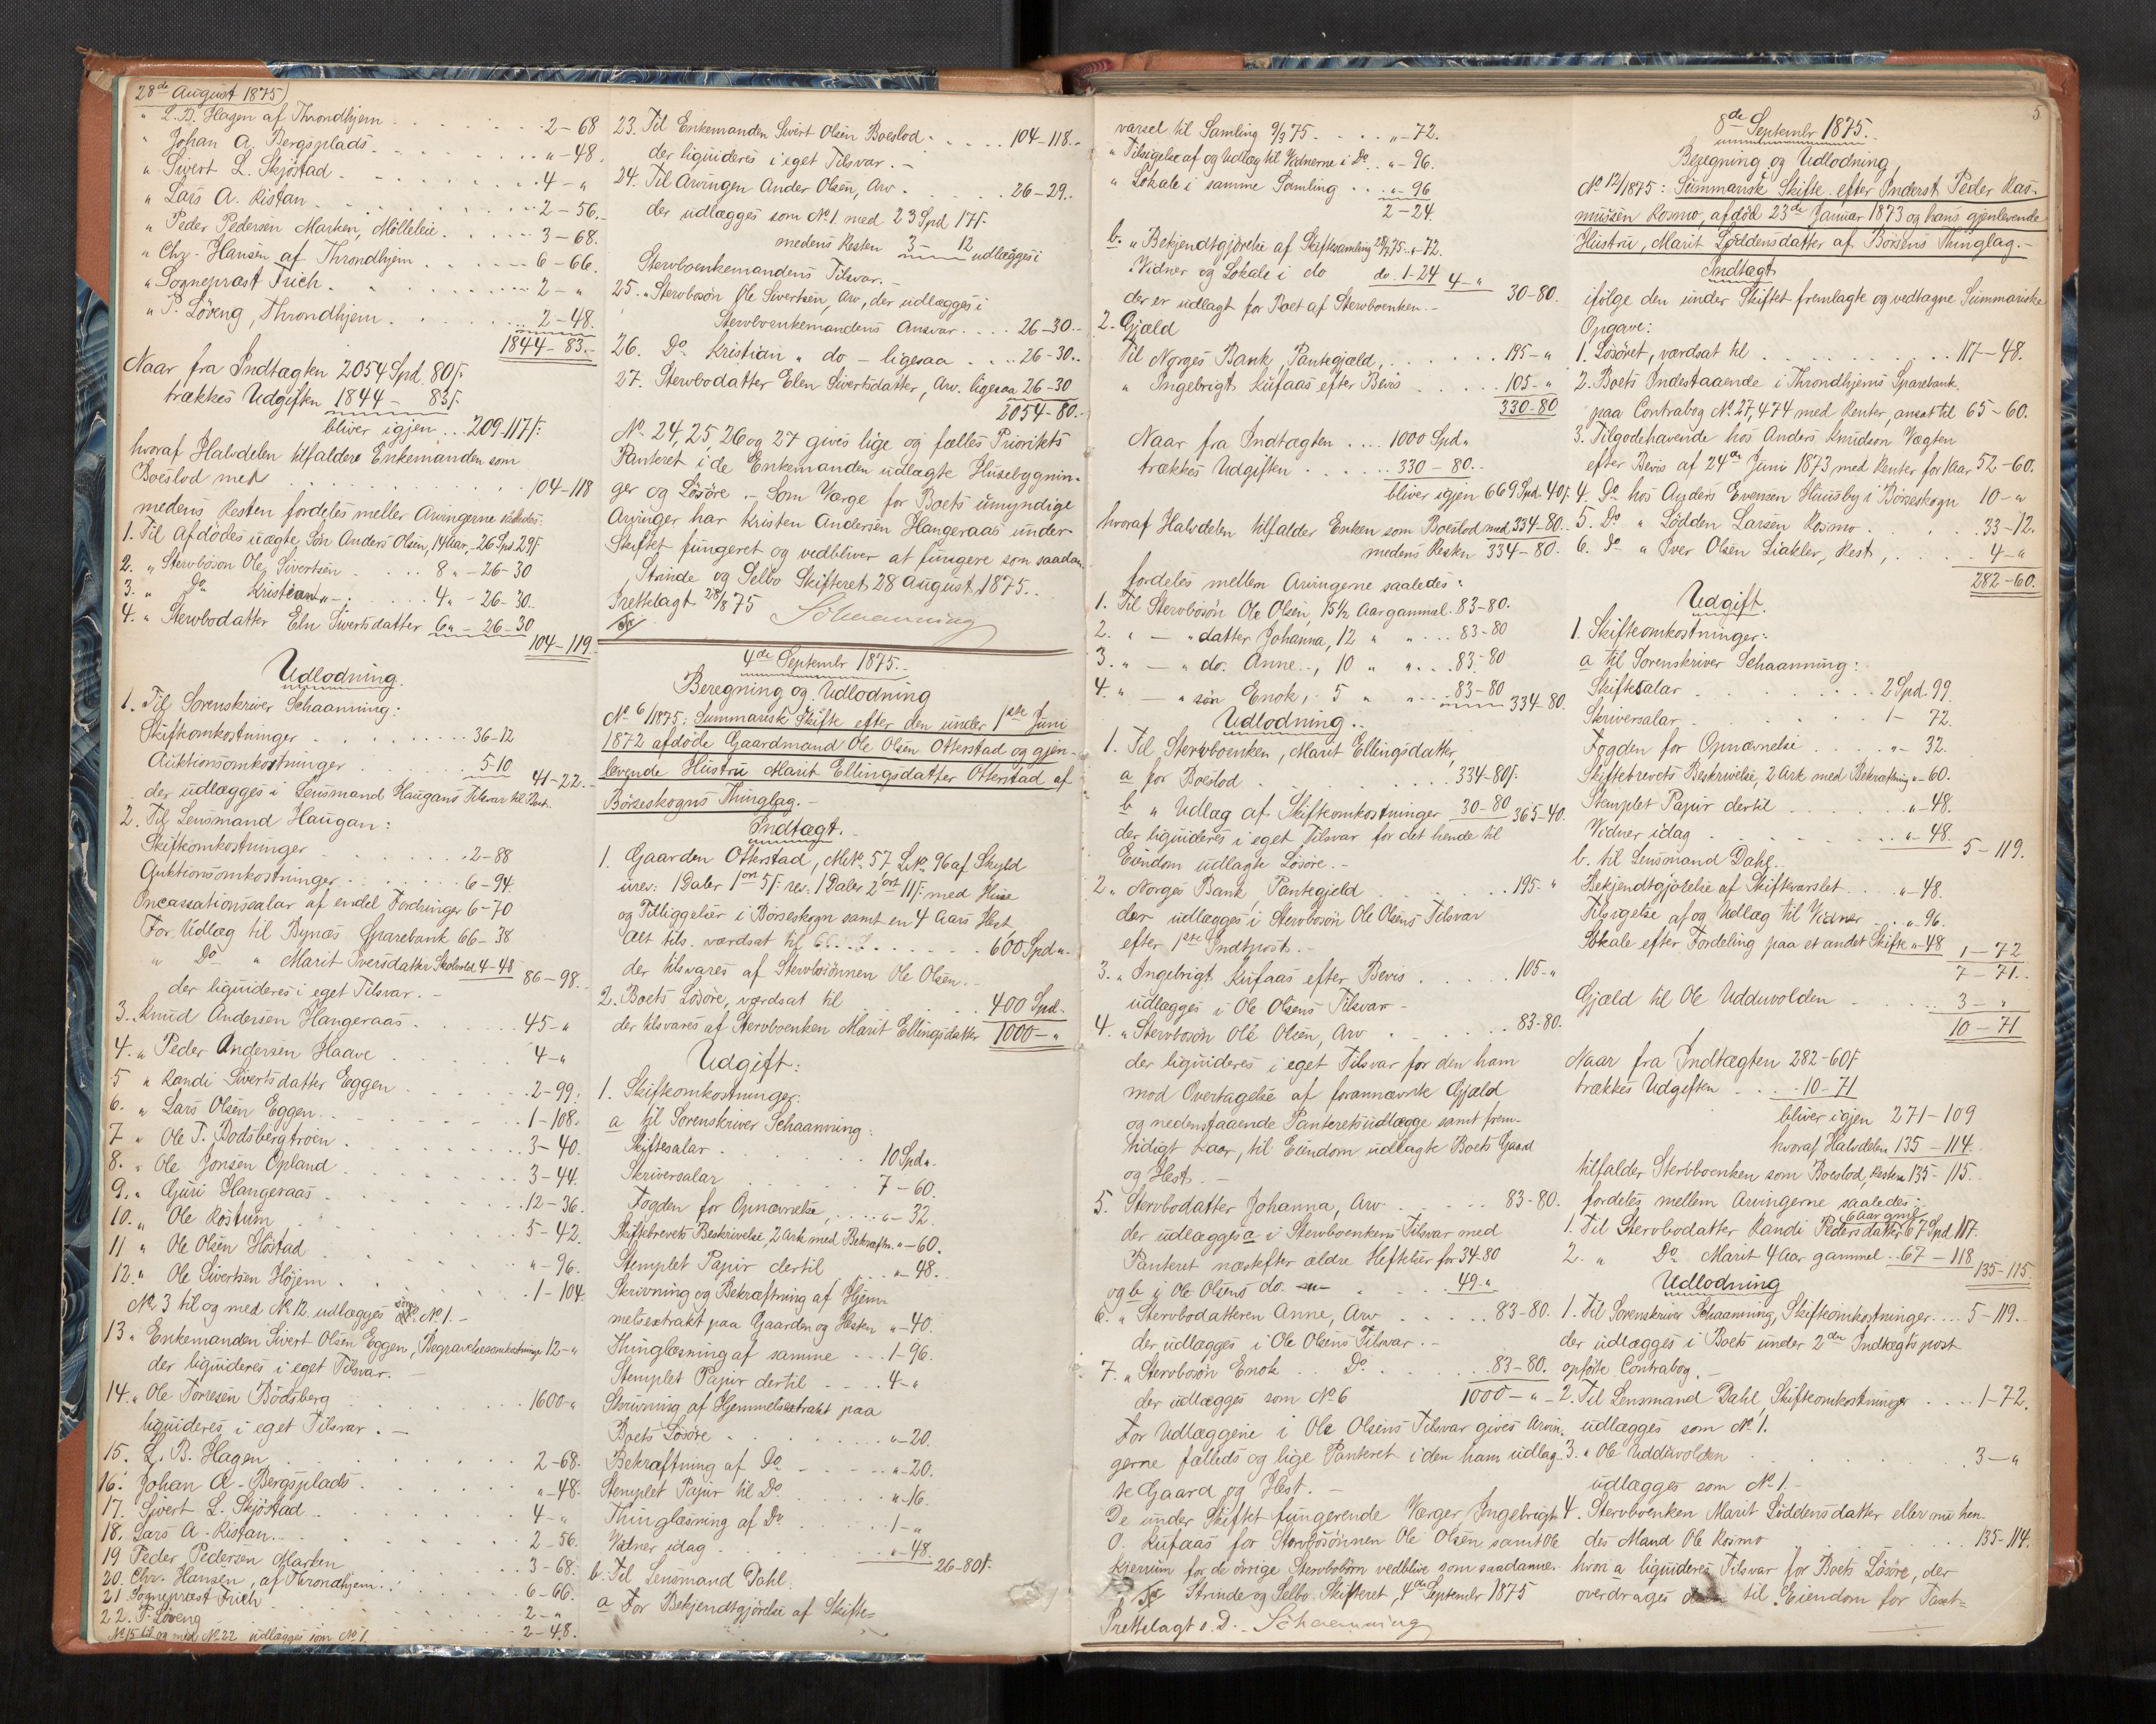 28de August 1875)
" L. B. Hagen af Throndhjem . . . 2-68
" Johan A. Bergsplads . . . "-48.
" Sivert L. Skjöstad . . . 4-"
" Lars A. Ristan . . . 2-56.
" Peder Pedersen Marken, Mölleleie . . . 3-68.
" Chr. Hansen af Throndhjem . . . 6-66.
" Sognepræst Frich . . . 2-"
" P. Löveng, Throndhjem . . . 2-48.
1844-83.-
Naar fra Indtægten 2054 Spd. 80ſ.
trækkes Udgiften 1844 - 83ſ.
bliver igjen . . . 209-117ſ.
hvoraf Halvdelen tilfalder Enkemanden som
Boeslod med . . . 104-118
medens Resten fordeles meller Arvingerne saaledes:
1. Til Afdödes uægte Sön Anders Olsen, 14 Aar, - 26 Spd. 29ſ
2. " Stervbosön Ole Sivertsen . . . 8 " - 26-30
3. " Do Kristian " - . . . 4 " - 26-30.
4. " Stervbodatter Eln Sivertsdatter 6 " - 26-30
104-119.
Udlodning.
1. Til Sorenskriver Schaanning:
Skifteomkostninger . . . 36-12
Auktionsomkostninger . . . 5-10
41-22.-
der udlægges i Lensmand Haugans Tilsvar til Boet.
2. Til Lensmand Haugan:
Skifteomkostninger . . . 2-88
Auktionsomkostninger . . . 6-94.
Incassationssalar af endel Fordringer 6-70
For Udlæg til Bynæs Sparebank 66-38
" Do " Marit Iversdatter Skolvold 4-48
86-98.
der liquideres i eget Tilsvar.-
3. Knud Andersen Hangeraas . . . 45-"
4. " Peder Andersen Haave . . . 4-"
5 " Randi Sivertsdatter Eggen . . . 2-99.
6. " Lars Olsen Eggen . . . 1-108.
7 " Ole T. Bodsbergtröen . . . 3-40.
8. " Ole Jonsen Opland . . . 3-44.
9. " Guri Hangeraas . . . 12-36.
10. " Ole Röstum . . . 5-42.
11 " Ole Olsen Höstad . . . "-96.
12. " Ole Sivertsen Höjem . . . 1-104.
No. 3 til og med No. 12 udlægges som No. 1.-
13 " Enkemanden Sivert Olsen Eggen, Begravelsesomkostninger 12-"
der liquideres i eget Tilsvar.-
14. " Ole Torresen Bödsberg . . . 1600-"
liquideres i eget Tilsvar.-
15. L. B. Hagen . . . 2-68.
16. Johan A. Bergsplads . . . "-48.
17. Sivert L. Skjöstad . . . 4-"
18. Lars A. Ristan . . . 2-56.
19 Peder Pedersen Marken . . . 3-68.
20. Chr. Hansen, af Throndhjem . . . 6-66.
21 Sogneprest Frich . . . 2-"
22. P. Löveng . . . 2-48.
No. 15 til og med No. 22 udlægges som No. 1.
23. Til Enkemanden Sivert Olsen Boeslod . . . 104-118.-
der liquideres i eget Tilsvar.-
24. Til Arvingen Ander Olsen, Arv . . . 26-29.-
der udlægges som No. 1 med 23 Spd 17ſ.
medens Resten 3- 12 udlægges i
Stervboenkemandens Tilsvar.-
25. " Stervbosön Ole Sivertsen, Arv, der udlægges i
Stervboenkemandens Ansvar . . . 26-30.-
26. Do Kristian " do - ligesaa . . . 26-30.-
27. Stervbodatter Elen Sivertsdatter, Arv. ligesaa 26-30
2054-80.-
No. 24, 25 26 og 27 gives lige og fælles Prioritets
Panteret i de Enkemanden udlagte Husebygnin-
ger og Lösöre.- Som Værge for Boets umyndige
Arvinger har Kristen Andersen Hangeraas under
Skiftet fungeret og vedbliver at fungere som saadan
Strinde og Selbo Skifteret 28 August 1875.
Prettelagt 28/8 75
Schaanning
4de September 1875.
Beregning og Udlodning
No. 6/1875: Summarisk Skifte efter den under 1ste Juni
1872 afdöde Gaardmand Ole Olsen Otterstad og gjen-
levende Hustru Marit Ellingsdatter Otterstad af
Börseskogns Thinglag.-
Indtægt.
1. Gaarden Otterstad, M.No. 57 L.No. 96 af Skyld
urev: 1 Daler 1 ort 5ſ. rev: 1 Daler 2 ort 11ſ. med Huse
og Tilliggelser i Börseskogn samt en 4 Aars Hest,
Alt tils. værdsat til . . . 600 Spd ".
der tilsvares af Stervbosönnen Ole Olsen.
2. Boets Lösöre, værdsat til . . . 400 Spd.
der tilsvares af Stervboenken Marit Ellingsdatter 1000-"
Udgift:
1. Skifteomkostninger:
a til Sorenskriver Schaanning:
Skiftesalar . . . 10 Spd ".
Skriversalar . . . 7-60.
Fogden for Opnævnelse, . . . "-32.
Skiftebrevets Beskrivelse, 2 Ark med Bekræftn. "-60.
Stemplet Papir dertil . . . "-48.
Skrivning og Bekræftning af Hjem-
melsextrakt paa Gaarden og Hesten "-40.
Thinglæsning af samme . . . 1-96.
Stemplet Papir dertil . . . 4-"
Skrivning af Hjemmelsextrakt paa
Boets Lösöre . . . "-20.
Bekræftning af Do . . . "-20.
Stemplet Papir til Do . . . "-16.
Thinglæsning af Do . . . 1-"
Vidner idag . . . "-48.
26-80ſ.
b. Til Lensmand Dahl.
a For Bekjendtgjörelse af Skifte-
varsel til Samling 9/3 75 . . . "-72.
" Tilsigelse af og Udlæg til Vidnerne i Do . . "-96.
" Lokale i samme Samling . . . "-96
2-24.
b. " Bekjendtgjörelse af Skiftesamling 28/8 75 "-72.
" Vidner og Lokale i do do. 1-24 4-"
30-80.
der er udlagt for Boet af Stervboenken.-
2. Gjæld
Til Norges Bank, Pantegjæld, . . . 195-"
" Ingebrigt Kufaas efter Bevis . . . 105-"
330-80
Naar fra Indtægten . . . 1000 Spd "
trækkes Udgiften . . . 330-80.-
bliver igjen 669 Spd. 40ſ.
hvoraf Halvdelen tilfalder Enken som Boeslod med 334-80.
medens Resten 334-80.
fordeles mellem Arvingerne saaledes:
1. Til Stervbosön Ole Olsen, 15 1/2 Aar gammel. 83-80.
2. " - " datter Johanna, 12 " " . . . 83-80
3. " - " do. Anne, 10 " " . . . 83-80
4. " - " sön Enok, 5 " " . . . 83-80
334-80.
Udlodning.
1. Til Stervboenken, Marit Ellingsdatter,
a for Boeslod . . . 334-80ſ.
b " Udlæg af Skifteomkostninger 30-80 365-40.
der liquideres i eget Tilsvar for det hende til
Eiendom udlagte Lösöre.-
2 " Norges Bank, Pantegjeld . . . 195-"
der udlægges i Stervbosön Ole Olsens Tilsvar
efter 1ste Indtpost.-
3. " Ingebrigt Kufaas efter Bevis . . . 105-"
udlægges i Ole Olsens Tilsvar-
4. " Stervbosön Ole Olsen, Arv . . . 83-80.
der liquideres i eget Tilsvar for den ham
mod Overtagelse af forannævnte Gjæld
og nedenstaaende Panteretsudlægge samt frem-
tidigt Kaar, til Eiendom udlagte Boets Gaard
og Hest.-
5. Stervbodatter Johanna, Arv . . . 83-80.
der udlægges a i Stervboenkens Tilsvar med
Panteret næstefter ældre Heftelser for 34-80
og b i Ole Olsens do. . . . 49-"
6. " Stervbodatteren Anne, Arv . . . 83-80.
der udlægges i Ole Olsens Tilsvar.-
7. " Stervbosön Enok . . Do . . . 83-80.
der udlægges som No 6 1000-"-
For Udlæggene i Ole Olsens Tilsvar gives Arvin-
gerne fælleds og lige Panteret i den ham udlag-
te Gaard og Hest.-
De under Skiftet fungerende Værger Ingebrigt
O. Kufaas for Stervbosönnen Ole Olsen samt Ole
Kjerrum for de övrige Stervbobörn vedblive som saadanne.
Strinde og Selbo Skifteret, 4de September 1875
Prettelagt s. D.- Schaanning
5
8de September 1875.
Beregning og Udlodning
No. 12/1875: Summarisk Skifte efter Inderst Peder Ras-
mussen Rosmo, afdöd 23de Januar 1873 og hans gjenlevende
Hustru, Marit Löddensdatter af Börsens Thinglag.-
Indtægt
ifölge den under Skiftet fremlagte og vedtagne Summariske
Opgave:
1. Lösöret, værdsat til . . . 117-48.
2. Boets Indestaaende i Throndhjems Sparebank
paa Contrabog No. 27,474 med Renter, ansat til 65-60.
3. Tilgodehavende hos Anders Knudson Vægten
efter Bevis af 24de Juni 1873 med Renter for 1 Aar 52-60.
4. Do hos Anders Evensen Huusby i Börseskogn 10-"
5. Do " Lödden Larsen Rosmo . . . 33-12.
6. Do " Iver Olsen Liakler, Rest, . . . 4-"
282-60.
Udgift.
1. Skifteomkostninger:
a til Sorenskriver Schaanning:
Skiftesalar . . . 2 Spd. 99.
Skriversalar . . . 1- 72.
Fogden for Opnævnelse . . . "- 32.
Skiftebrevets Beskrivelse, 2 Ark med Bekræftning "-60.
Stemplet Papir dertil . . . "-48.
Vidner idag . . . "-48.
5-119.
b. til Lensmand Dahl.
Bekjendtgjörelse af Skiftevarslet . . . "-48.
Tilsigelse af og Udlæg til Vidner . . . "-96.
Lokale efter Fordeling paa et andet Skifte "-48
1-72
7-71.
Gjæld til Ole Udduvolden . . . 3-"
10-71
Naar fra Indtægten 282-60ſ
trækkes Udgiften . . . 10-71
bliver igjen 271-109
hvoraf Halvdelen 135-114.
tilfalder Stervboenken som Boeslod, Resten 135-115.
fordeles mellem Arvingerne saaledes:
1. Til Stervbodatter Randi Pedersdatter 6 Aar gml 67 Spd. 117.
2. " Do Marit 4 Aar gammel . . 67-118
135-115.
Udlodning
1. Til Sorenskriver Schaanning, Skifteomkostninger . . . 5-119.
der udlægges i Boets under 2den Indtægtspost
opförte Contrabog.-
2. Til Lensmand Dahl, Skifteomkostninger . . . 1-72.
udlægges som No 1.
3. " Ole Udduvolden . . . 3-"
udlægges som No 1.-
4. Stervboenken Marit Löddensdatter eller nu hen-
des Mand Ole Rosmo . . . 135-114.
hvori a liquideres Tilsvar for Boets Lösöre, der
overdrages til Eiendom for Taxt-